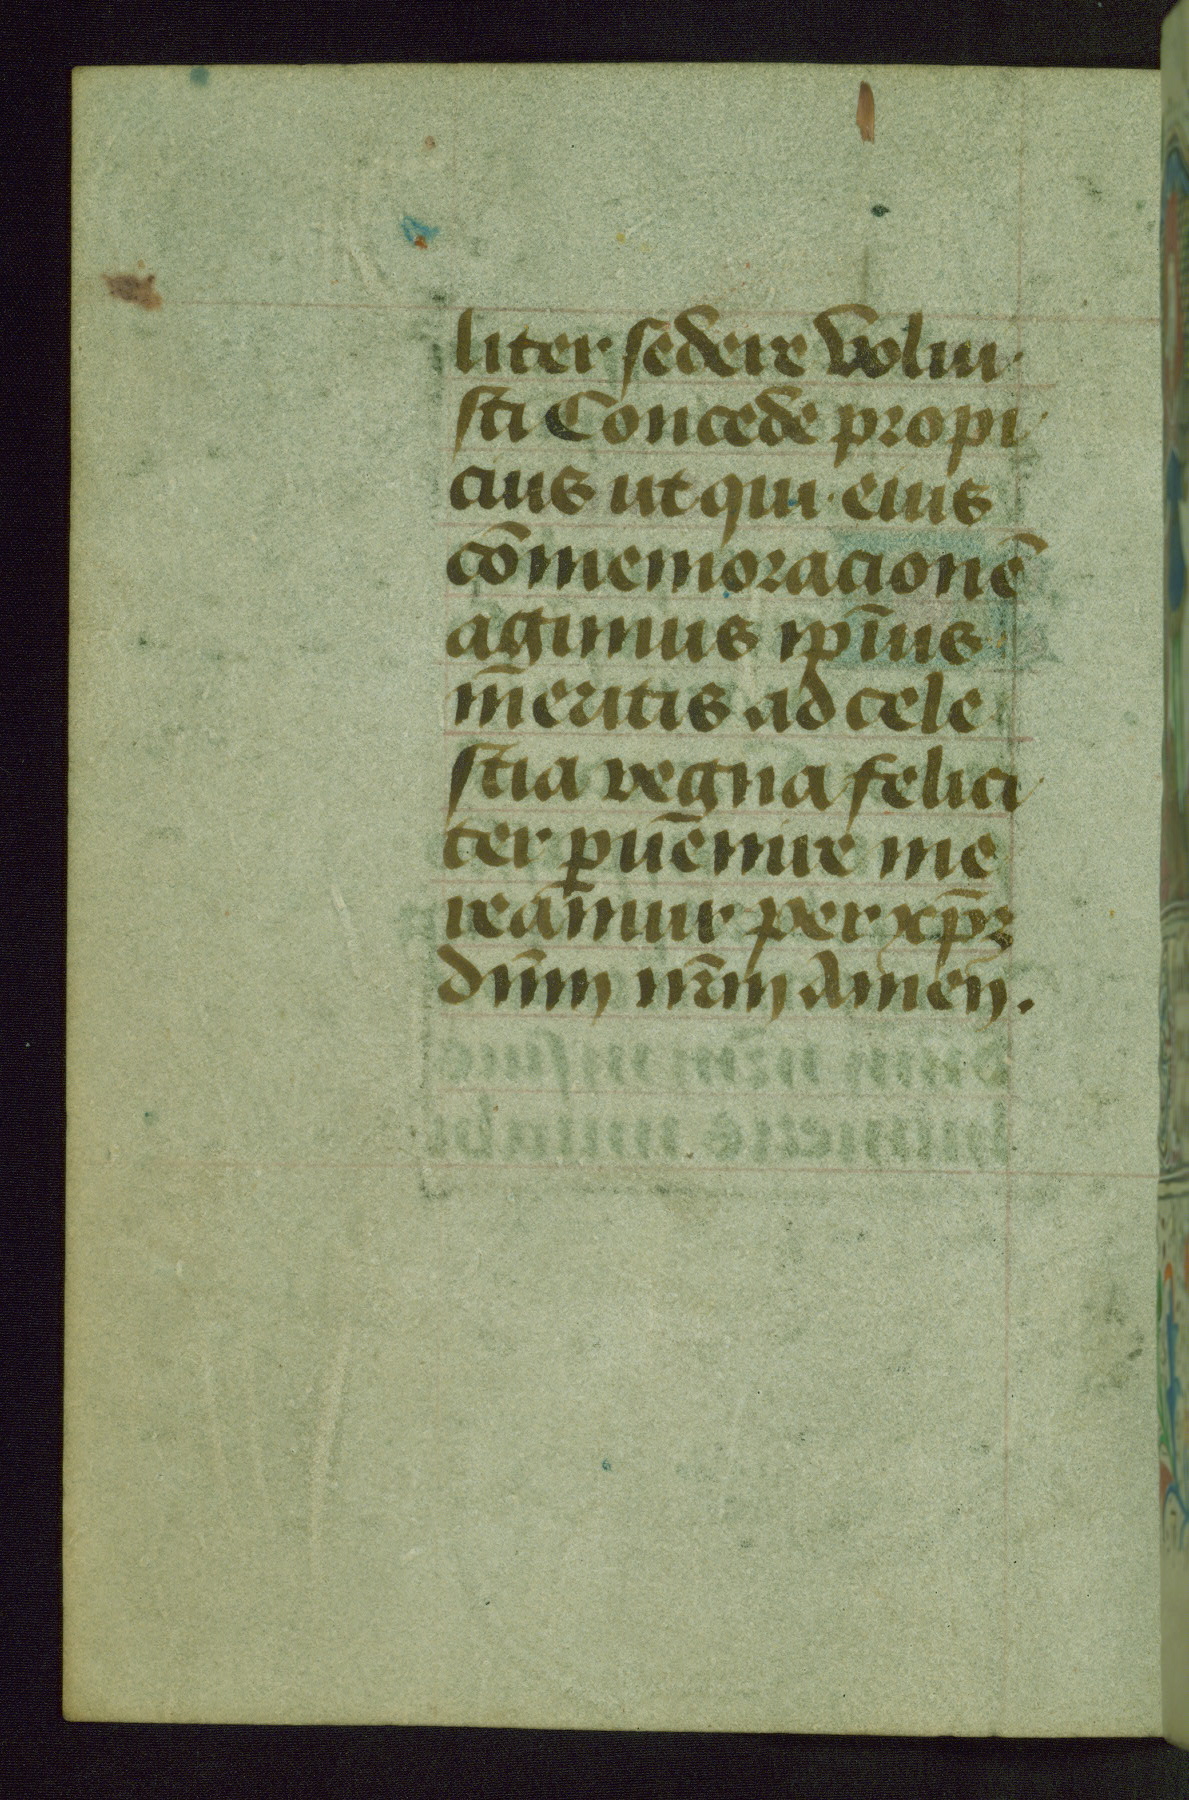 liter sedere volui
sti Concede propi
cius ut qui eius
cōmemoracionē
agimus ip̄ius
meritis ad cele
stia regna felici
ter ꝑuēnire me
reamur per xp̄ꝫ
dn̄m nr̄m Amen.